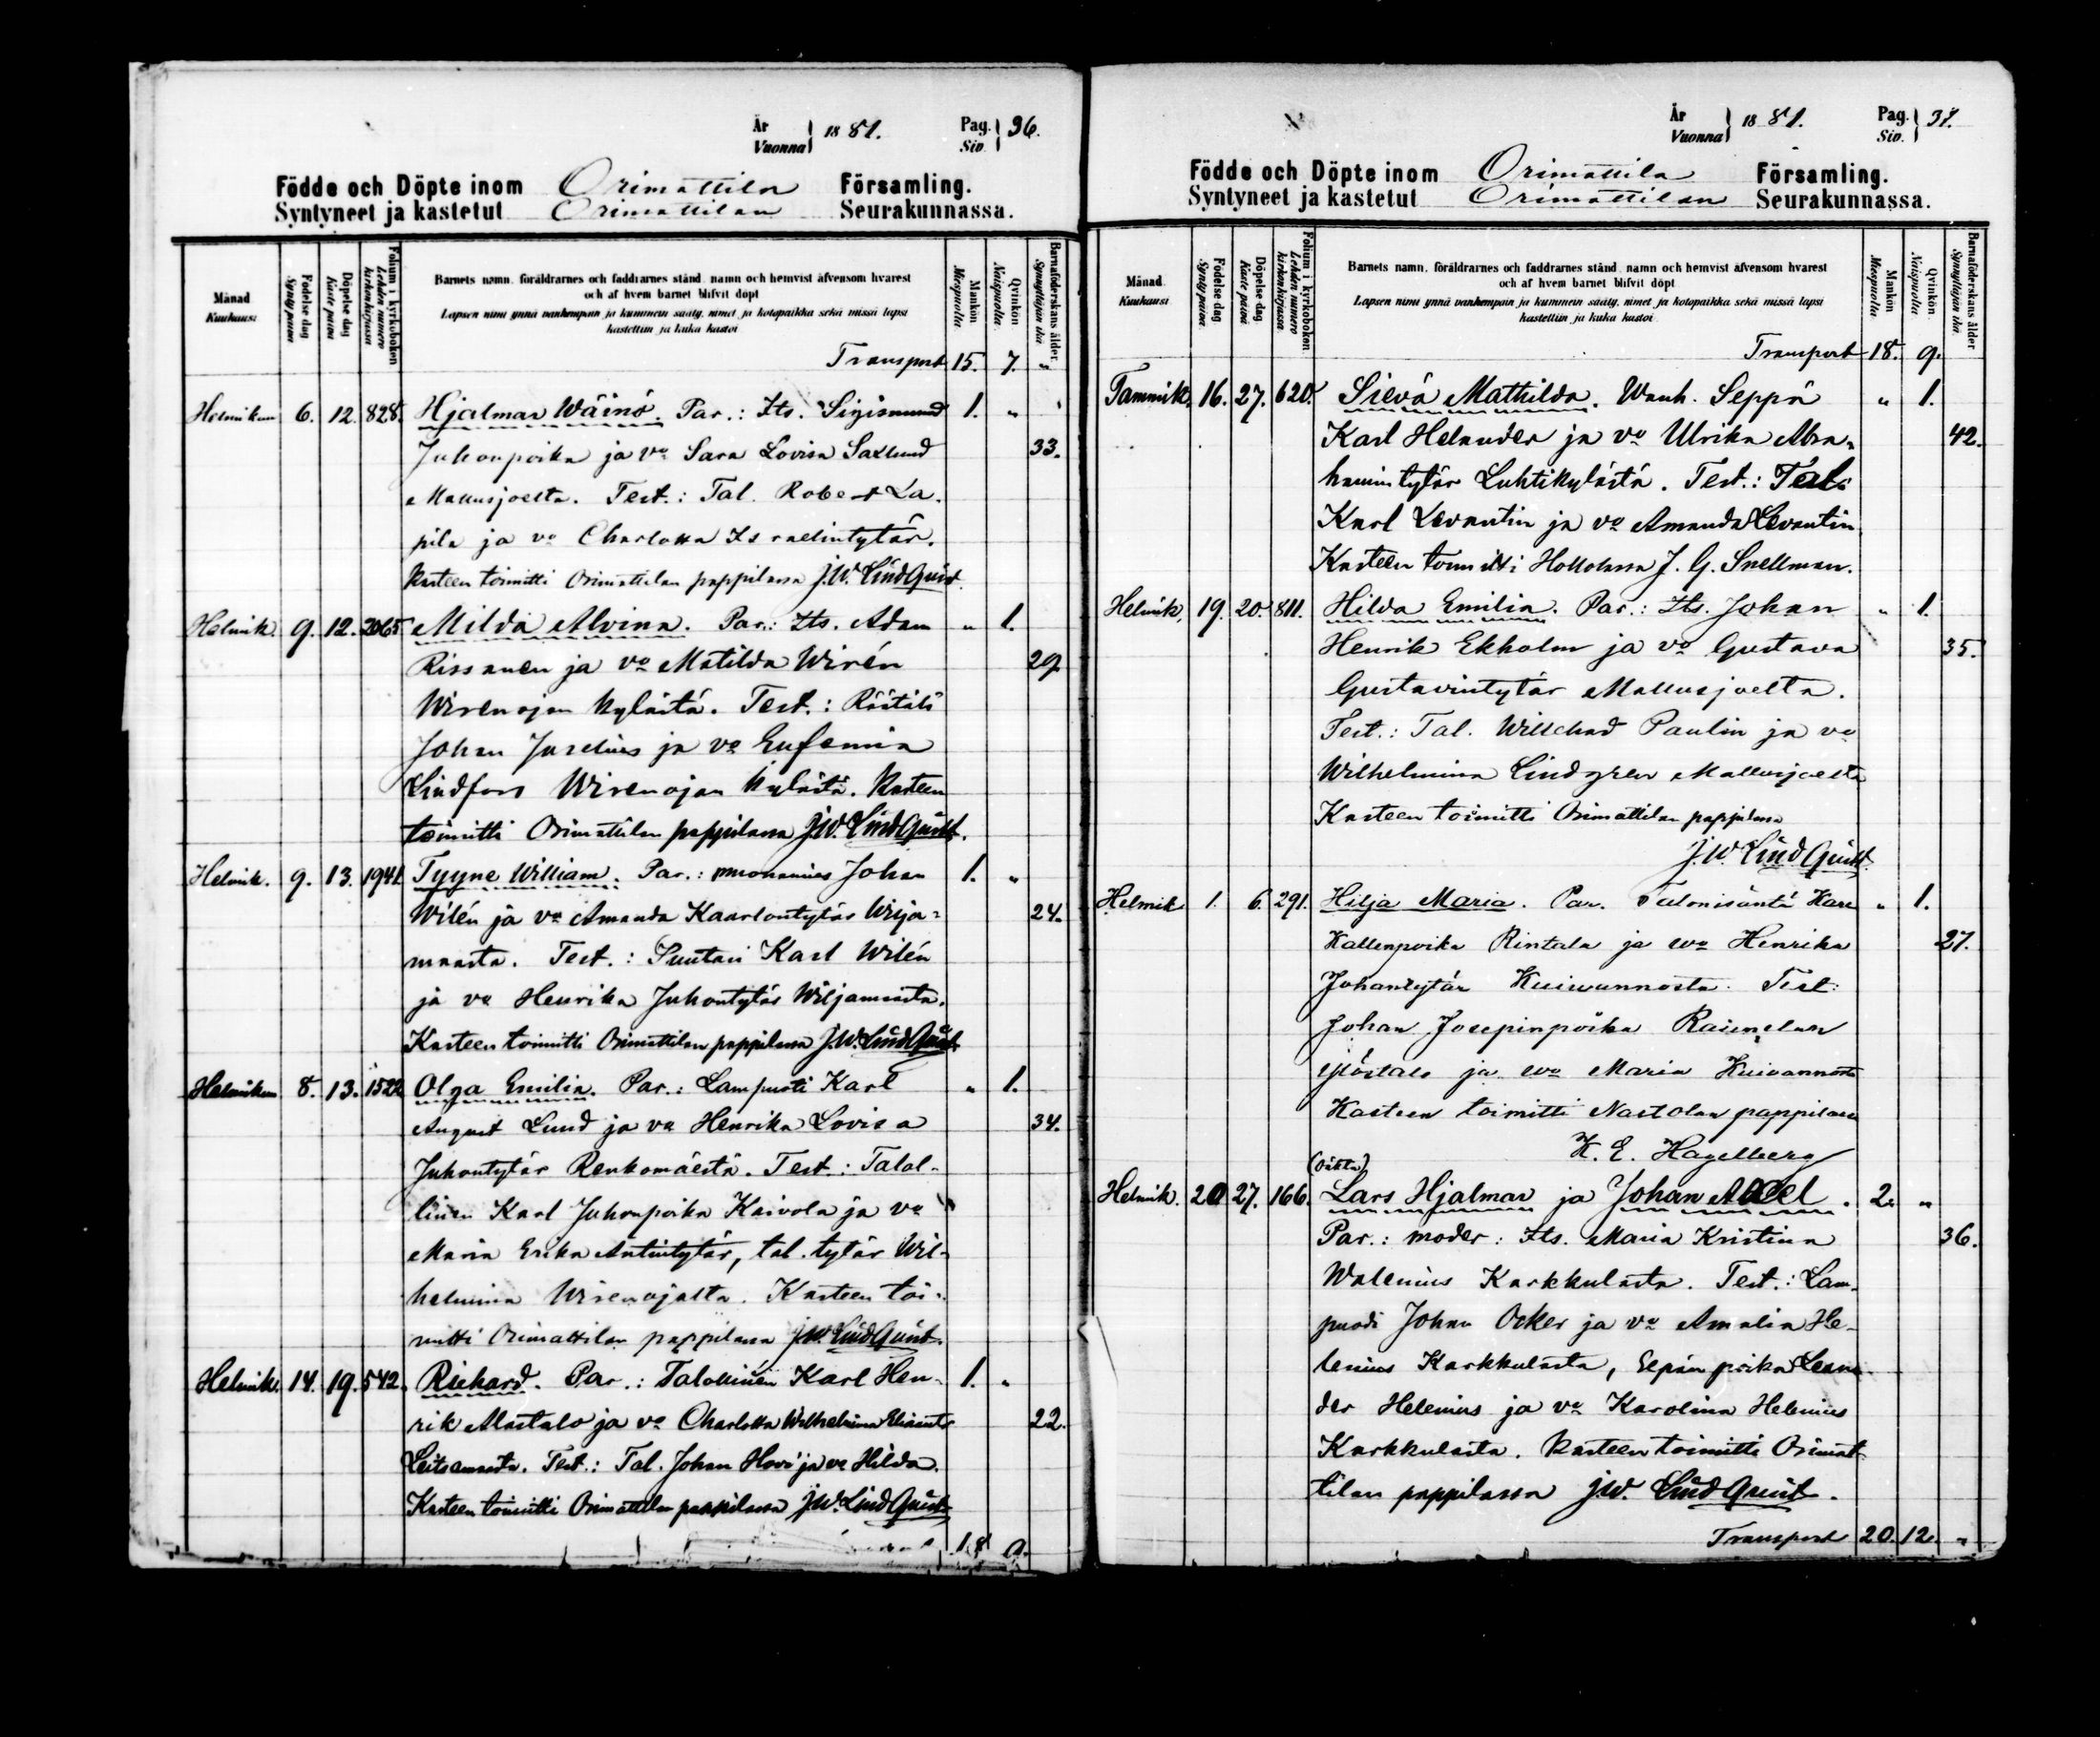 År
Vuonna 1881. Pag. Siv. 36.
Födde och Döpte inom Orimattila Församling.
Syntyneet ja kastetut Orimattilan Seurakunnassa.
Månad Kuukausi
Födelse dag Synty päivä
Döpelse dag Kaste päivä
Folium i kyrkoboken Lehden numero kirkonkirjassa
Barnets namn, föräldrarnes och faddrarnes stånd, namn och hemvist äfvensom hvarest
och af hvem barnet blifvit döpt
Lapsen nimi ynnä vanhempain ja kummein sääty, nimet ja kotopaikka sekä missä lapsi
kastettiin ja kuka kastoi
Mankön Miespuolta
Qvinkön Naispuolta
Barnaföderskans ålder Synnyttäjän ikä
Transport 15. 7. "
Helmikuu 6. 12. 828. Hjalmar Wäinö. Par.: Its. Sigismund 1. "
Juhonpoika ja vo Sara Lovisa Saxlund 33.
Mallusjoelta. Test.: Tal. Robert La-
pila ja vo Charlotta Israelintytär.
Kasteen toimitti Orimattilan pappilassa J.W. LindQuist.
Helmik. 9. 12. 2065 Milda Alvina. Par.: Its. Adam " 1.
Rissanen ja vo Matilda Wirén 29
Wirenojan kylästä. Test.: Räätäli
Johan Juselius ja vo Eufemia
Lindfors Wirenojan kylästä. Kasteen
toimitti Orimattilan pappilassa J.W. LindQuist.
Helmik. 9. 13. 1941. Tyyne William. Par.: muonamies Johan 1. "
Wilén ja vo Amanda Kaarlontytär Wilja- 24.
maasta. Test.: Suutari Karl Wilén
ja vo Henrika Juhontytär Wiljamaasta.
Kasteen toimitti Orimattilan pappilassa J.W. LindQuist
Helmikuu 8. 13. 1522 Olga Emilia. Par.: Lampuoti Karl " 1.
August Lund ja vo Henrika Lovisa 34.
Juhontytär Renkomäestä. Test.: Talol-
linen Karl Juhonpoika Kaivola ja vo
Maria Erika Antintytär, tal. tytär Wil-
helmina Wirenojalta. Kasteen toi-
mitti Orimattilan pappilassa J.W. LindQuist.
Helmik. 14. 19. 542. Richard. Par.: Talollinen Karl Hen- 1. "
rik Alastalo ja vo Charlotta Wilhelmina 22.
Leitsamaasta. Test.: Tal. Johan Hovi ja vo Hilda.
Kasteen toimitti Orimattilan pappilassa J.W. LindQuist
18 9.
År
Vuonna 1881. Pag. Siv. 37.
Födde och Döpte inom Orimattila Församling.
Syntyneet ja kastetut Orimattilan Seurakunnassa.
Månad Kuukausi
Födelse dag Synty päivä
Döpelse dag Kaste päivä
Folium i kyrkoboken Lehden numero kirkonkirjassa
Barnets namn, föräldrarnes och faddrarnes stånd, namn och hemvist äfvensom hvarest
och af hvem barnet blifvit döpt
Lapsen nimi ynnä vanhempain ja kummein sääty, nimet ja kotopaikka sekä missä lapsi
kastettiin ja kuka kastoi
Mankön Miespuolta
Qvinkön Naispuolta
Barnaföderskans ålder Synnyttäjän ikä
Transport 18. 9.
Tammik. 16. 27. 620. Sievä Mathilda. Wanh. Seppä " 1.
Karl Helander ja vo Ulrika Abra- 42.
hamintytär Luhtikylästä. Test.: Tal.
Karl Levantin ja vo Amanda Levantin
Kasteen toimitti Hollolassa J. G. Snellman.
Helmik. 19. 20. 811. Hilda Emilia. Par.: Its. Johan " 1.
Henrik Ekholm ja vo Gustava 35.
Gustavintytär Mallusjoelta.
Test.: Tal. Willehad Paulin ja vo
Wilhelmina Lindgren Mallusjoelta
Kasteen toimitti Orimattilan pappilassa
J.W. LindQuist.
Helmik 1. 6. 291. Hilja Maria. Par. Talonisäntä Karl " 1.
Kallenpoika Rintala ja wo Henrika 27.
Johantytär Kuiwannosta. Test:
Johan Josepinpoika Raimelan
ja wo Maria Kuivannosta
Kasteen toimitti Nastolan pappilassa
K. E. Hagelberg
(oäkta)
Helmik. 20 27. 166. Lars Hjalmar ja Johan Axel. 2. "
Par.: moder: Its. Maria Kristina 36.
Walenius Karkkulasta. Test.: Lam-
puodi Johan Ocker ja vo Amalia He-
lenius Karkkulasta, Sepän poika Lean-
der Helenius ja vo Karolina Helenius
Karkkulasta. Kasteen toimitti Orimat-
tilan pappilassa J.W. LindQuist.
Transport 20. 12. "